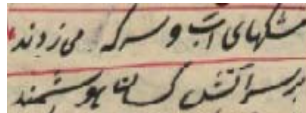 مشکهای آب و سرکه می‌زدند
بر سر آتش کسان هوشمند